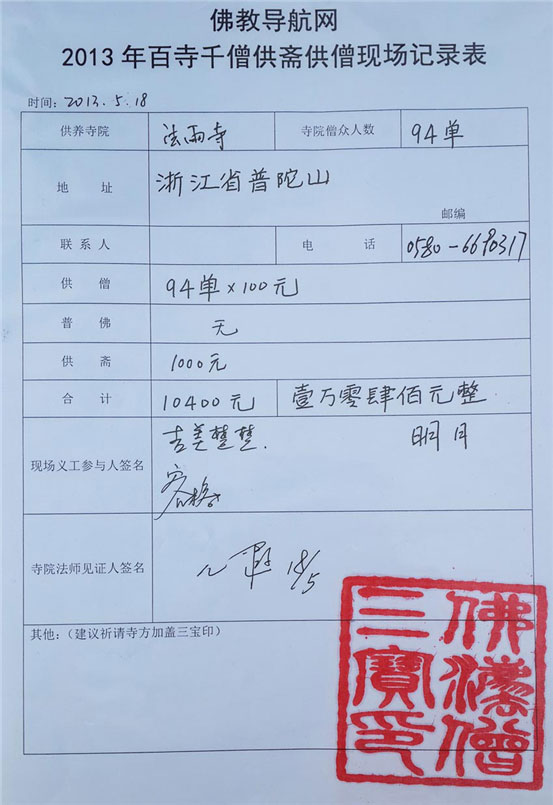 佛教导航网
2013年百寺千僧供斋供僧现场记录表
时间：2013.5.18
供养寺院 法雨寺 寺院僧众人数 94单
地 址 浙江省普陀山
邮编
联系人 电 话 0580-6690317
供 僧 94单×100元
普 佛 无
供 斋 1000元
合 计 10400元 壹万零肆佰元整
现场义工参与人签名 吉美楚楚. 明月
寺院法师见证人签名 18/5
其他：（建议祈请寺方加盖三宝印）
佛法僧
三寶印